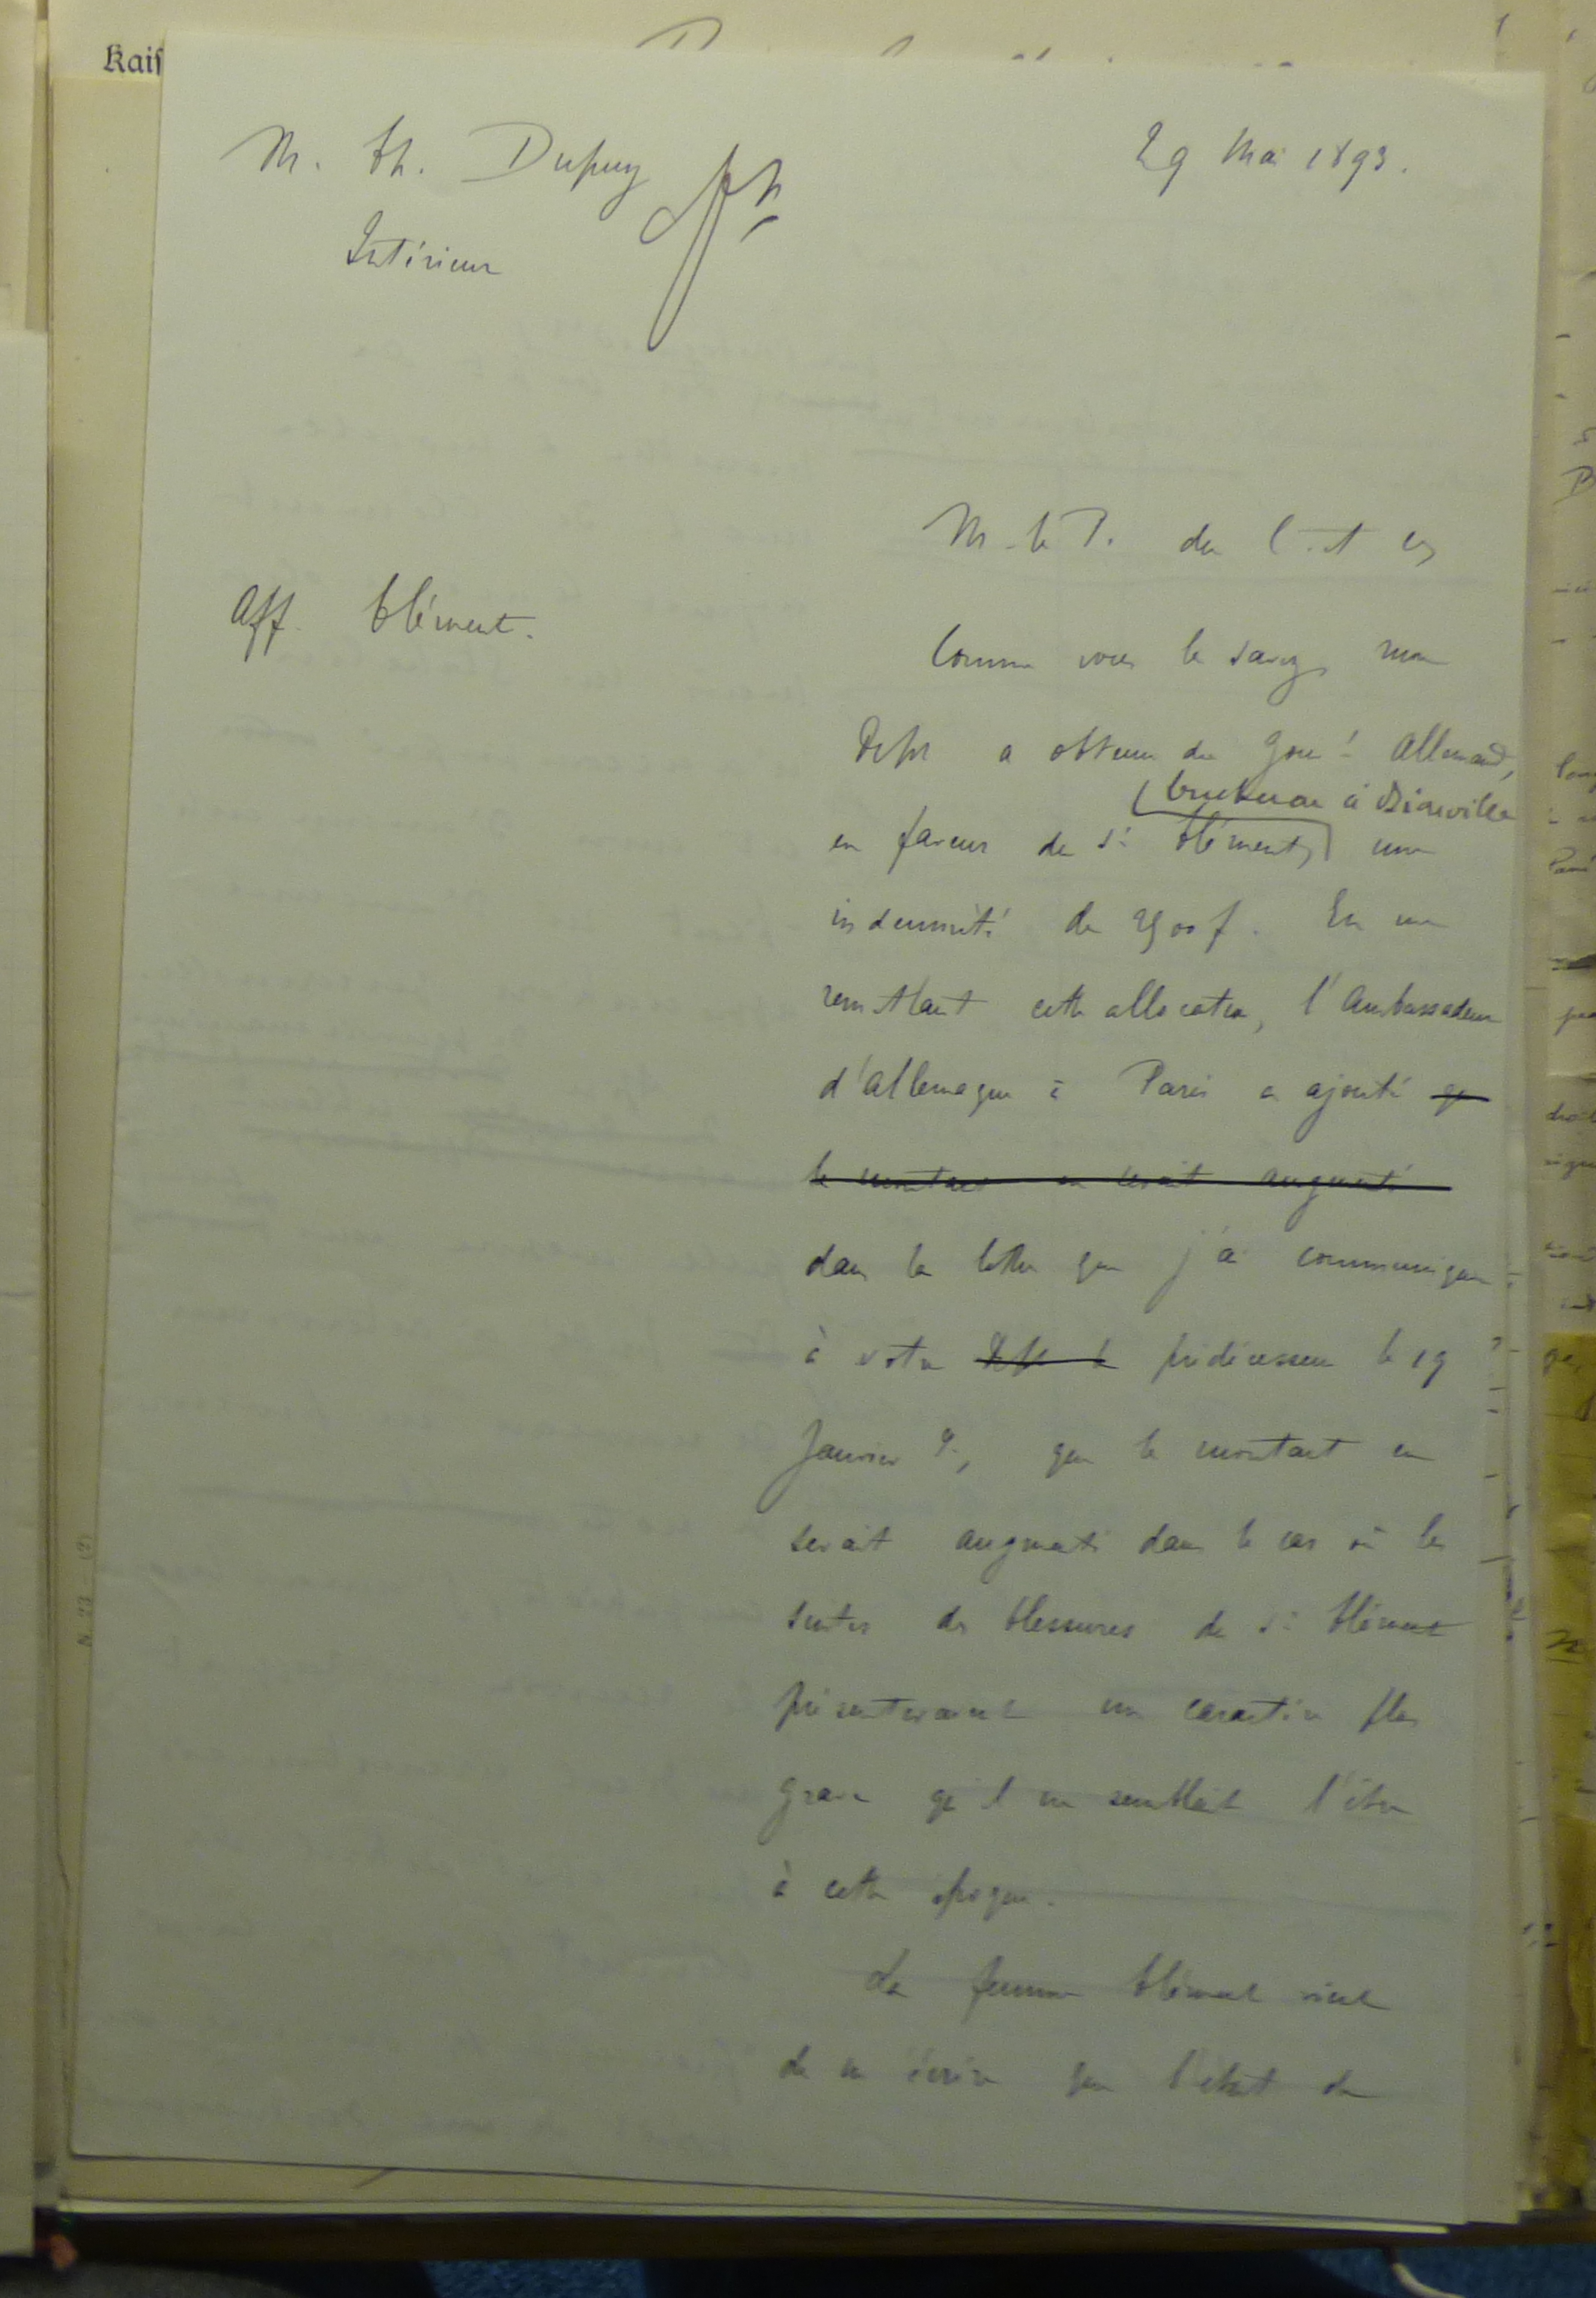 Kais
M. Ch. Dupuy
29 Mai 1893.
Intérieur
M. le P. du C. et
Aff. Clément.
Comme vous le savez, mon
Dépt a obtenu du Gouvt Allemand,
à Bionville
en faveur de Sr Clément, une
indemnité de f. En me
remettant cette allocation, l'Ambassadeur
d'Allemagne à Paris a ajouté que
le montant en serait augmenté
dans la lettre que j'ai communiquée
à votre Dépt le prédécesseur le 19
Janvier dr, que le montant en
serait augmenté dans le cas où les
suites des blessures du Sr Clément
présenteraient un caractère plus
grave qu'il ne semblait l'être
à cette époque.
La femme Clément vient
de m'écrire que l'état de
N. 23 (2)